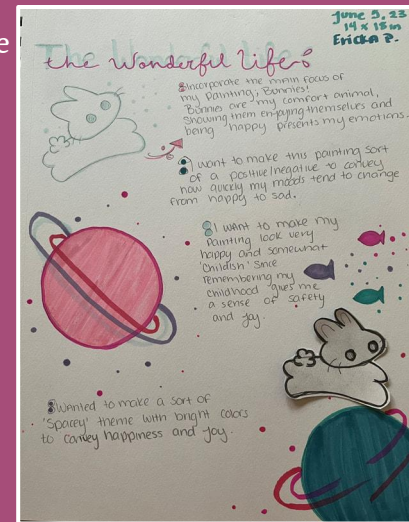 e
June 5, 23
14 x 18 in
Ericka P.
the Wonderful Life
Incorporate the main focus of
my painting; Bunnies!
Bunnies are my comfort animal,
Showing them enjoying themselves and
being happy presents my emotions.
I want to make this painting sort
of a positive/negative to convey
how quickly my moods tend to change
from happy to sad.
I want to make my
Painting look very
happy and somewhat
'Childish' Since
remembering my
childhood gives me
a sense of safety
and Joy.
Wanted to make a sort of
'Spacey' theme with bright colors
to convey happiness and Joy.